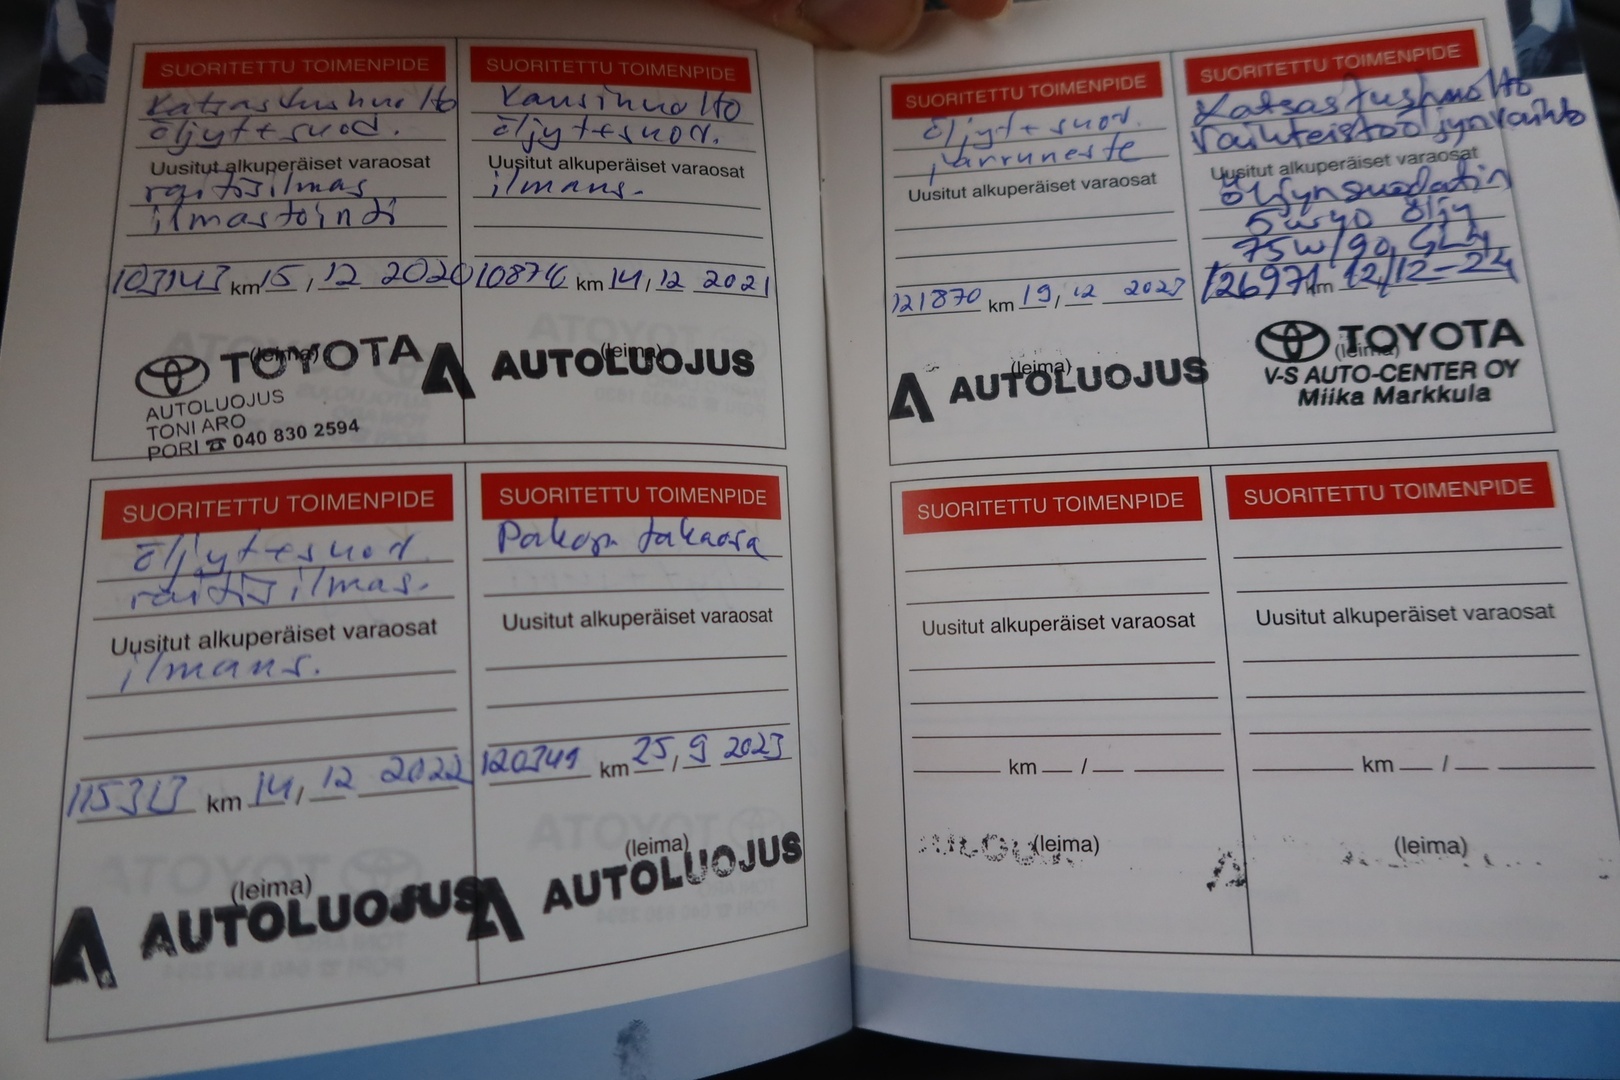 SUORITETTU TOIMENPIDE
Katsastushuolto
öljyt+suod.
Uusitut alkuperäiset varaosat
raitisilmas
ilmastointi
103143 km 15, 12 2020
(leima)
TOYOTA
AUTOLUOJUS
TONI ARO
PORI ☎ 040 830 2594
SUORITETTU TOIMENPIDE
Kausihuolto
öljyt+suod.
Uusitut alkuperäiset varaosat
ilmans.
km 14, 12 2021
(leima)
AUTOLUOJUS
SUORITETTU TOIMENPIDE
öljyt+suod.
raitisilmas.
Uusitut alkuperäiset varaosat
ilmans.
km 14, 12 2022
(leima)
AUTOLUOJUS
SUORITETTU TOIMENPIDE
Pakop. takaosa
Uusitut alkuperäiset varaosat
120349 km 25, 9 2023
(leima)
AUTOLUOJUS
SUORITETTU TOIMENPIDE
öljyt+suod.
jarruneste
Uusitut alkuperäiset varaosat
121870 km 19, 12 2023
(leima)
AUTOLUOJUS
SUORITETTU TOIMENPIDE
Katsastushuolto
Vaihteistoöljynvaihto
Uusitut alkuperäiset varaosat
Öljynsuodatin
5w40 öljy
75w/90, GL4
126971 km 12/12-24
(leima)
TOYOTA
V-S AUTO-CENTER OY
Miika Markkula
SUORITETTU TOIMENPIDE
Uusitut alkuperäiset varaosat
km /
(leima)
SUORITETTU TOIMENPIDE
Uusitut alkuperäiset varaosat
km /
(leima)